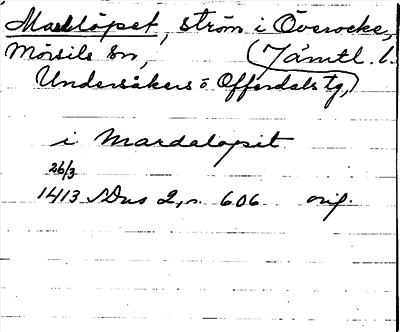 Mardlöpet, ström i Överocke,
Mörsils sn, (Jämtl. l.
Undersåkers o Offerdals tg,)
i Mardalopit
26/3
1413 SDns 2, s. 606 orig.